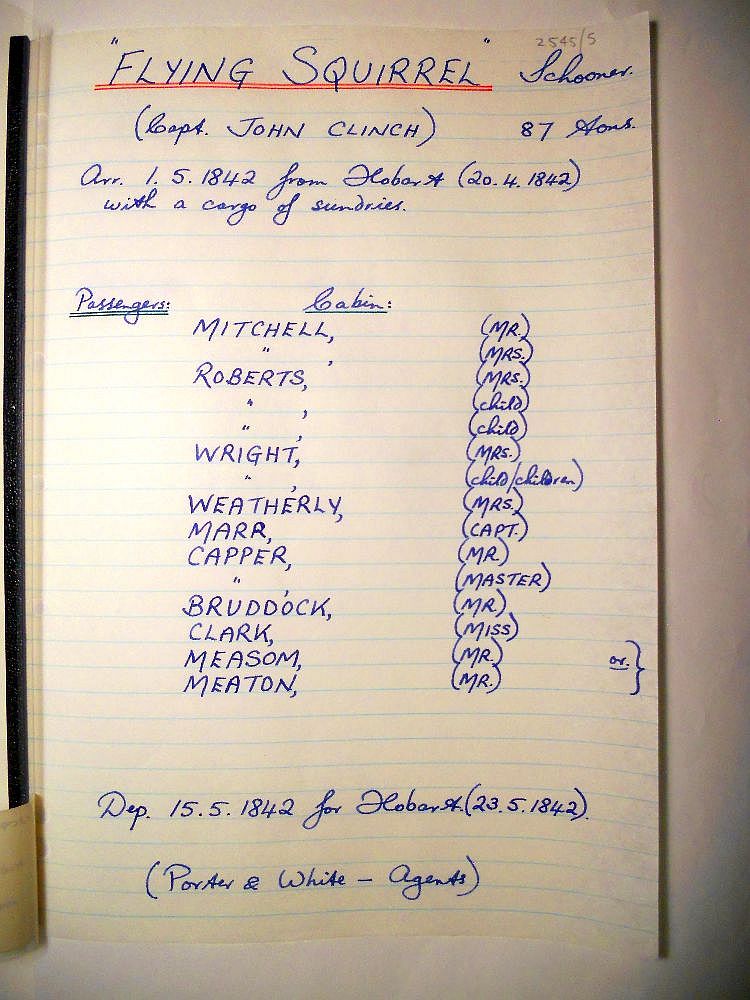 2545/5
"FLYING SQUIRREL" Schooner.
(Capt. JOHN CLINCH) 87 Tons.
Arr. 1.5.1842 from Hobart (20.4.1842)
with a cargo of sundries.
Passengers: Cabin:
MITCHELL, (MR.)
" , (MRS.)
ROBERTS, (MRS.)
" , (child)
" , (child)
WRIGHT, (MRS.)
" , (child/children)
WEATHERLY, (MRS.)
MARR, (CAPT.)
CAPPER, (MR.)
" , (MASTER)
BRUDDOCK, (MR.)
CLARK, (MISS)
MEASOM, (MR.) or. }
MEATON, (MR.)
Dep. 15.5.1842 for Hobart (23.5.1842).
(Porter & White - Agents)